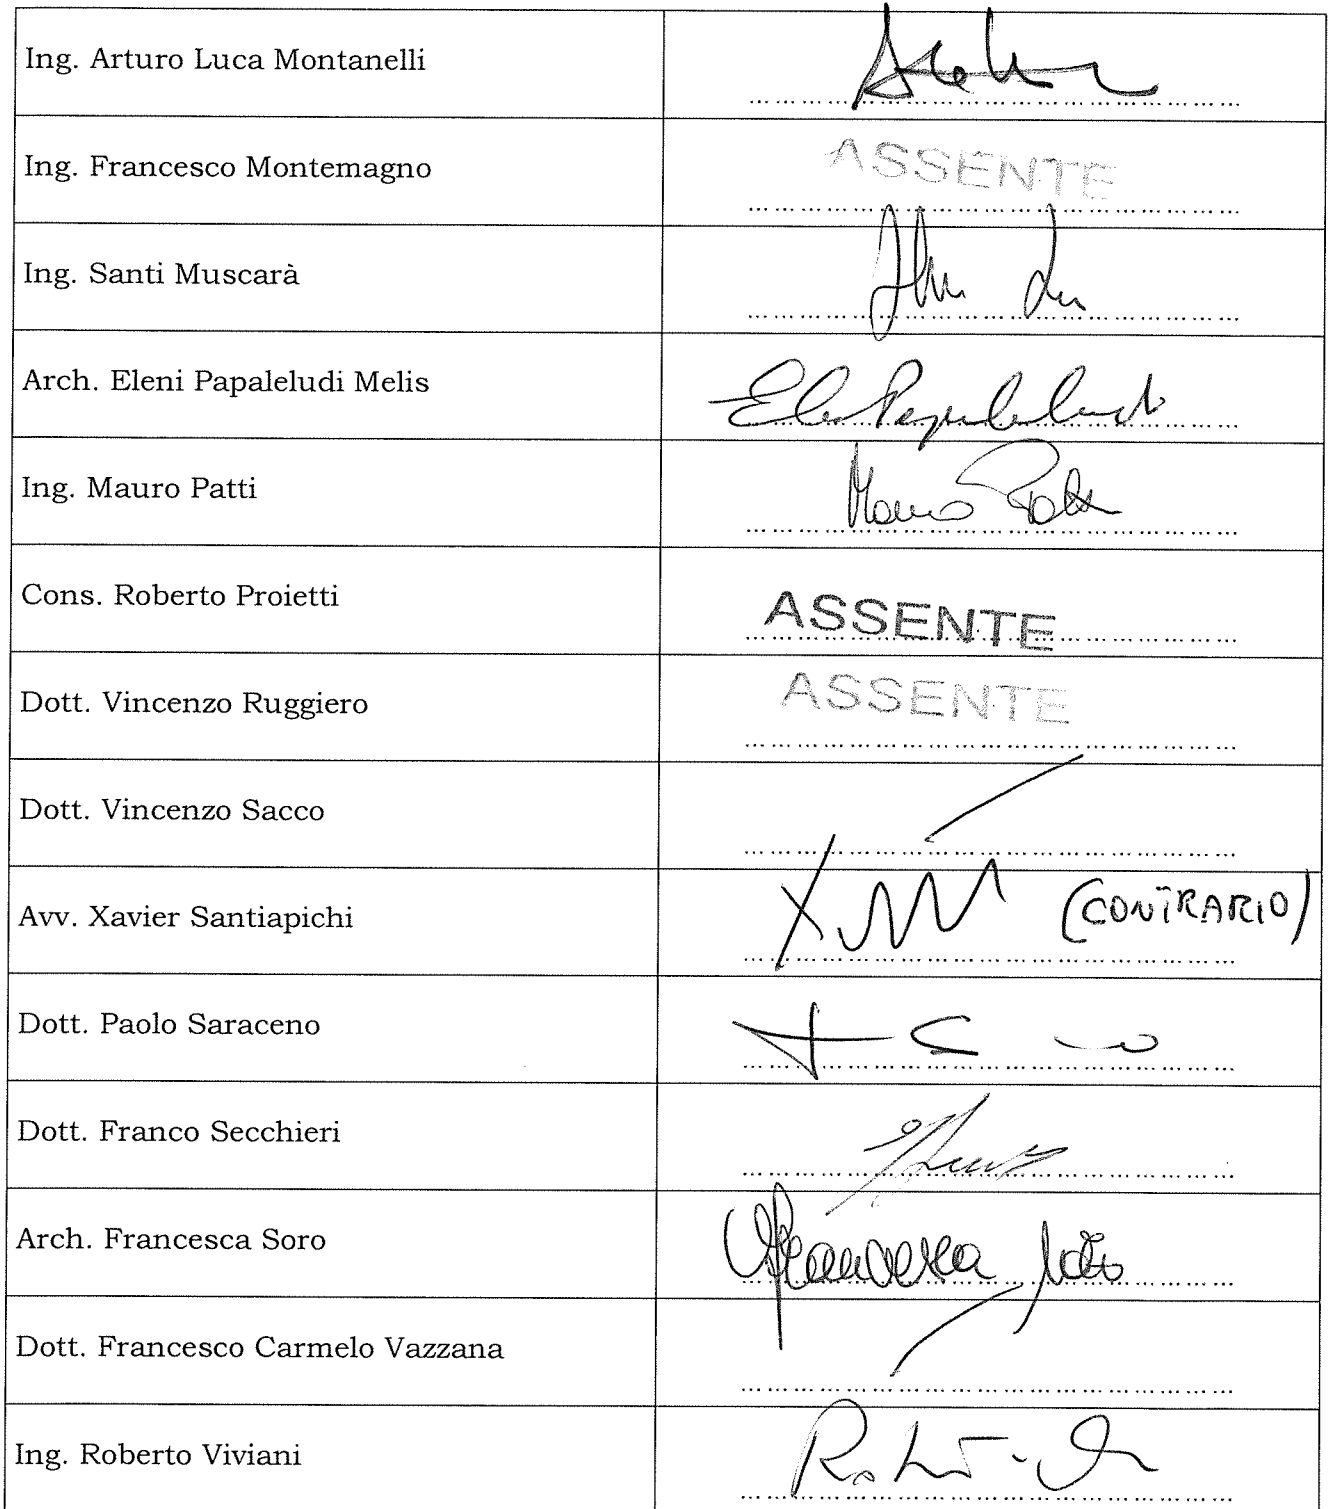 Ing. Arturo Luca Montanelli
Ing. Francesco Montemagno ASSENTE
Ing. Santi Muscarà
Arch. Eleni Papaleludi Melis
Ing. Mauro Patti Mauro Patti
Cons. Roberto Proietti ASSENTE
Dott. Vincenzo Ruggiero ASSENTE
Dott. Vincenzo Sacco
Avv. Xavier Santiapichi (CONTRARIO)
Dott. Paolo Saraceno
Dott. Franco Secchieri
Arch. Francesca Soro Francesca Soro
Dott. Francesco Carmelo Vazzana
Ing. Roberto Viviani